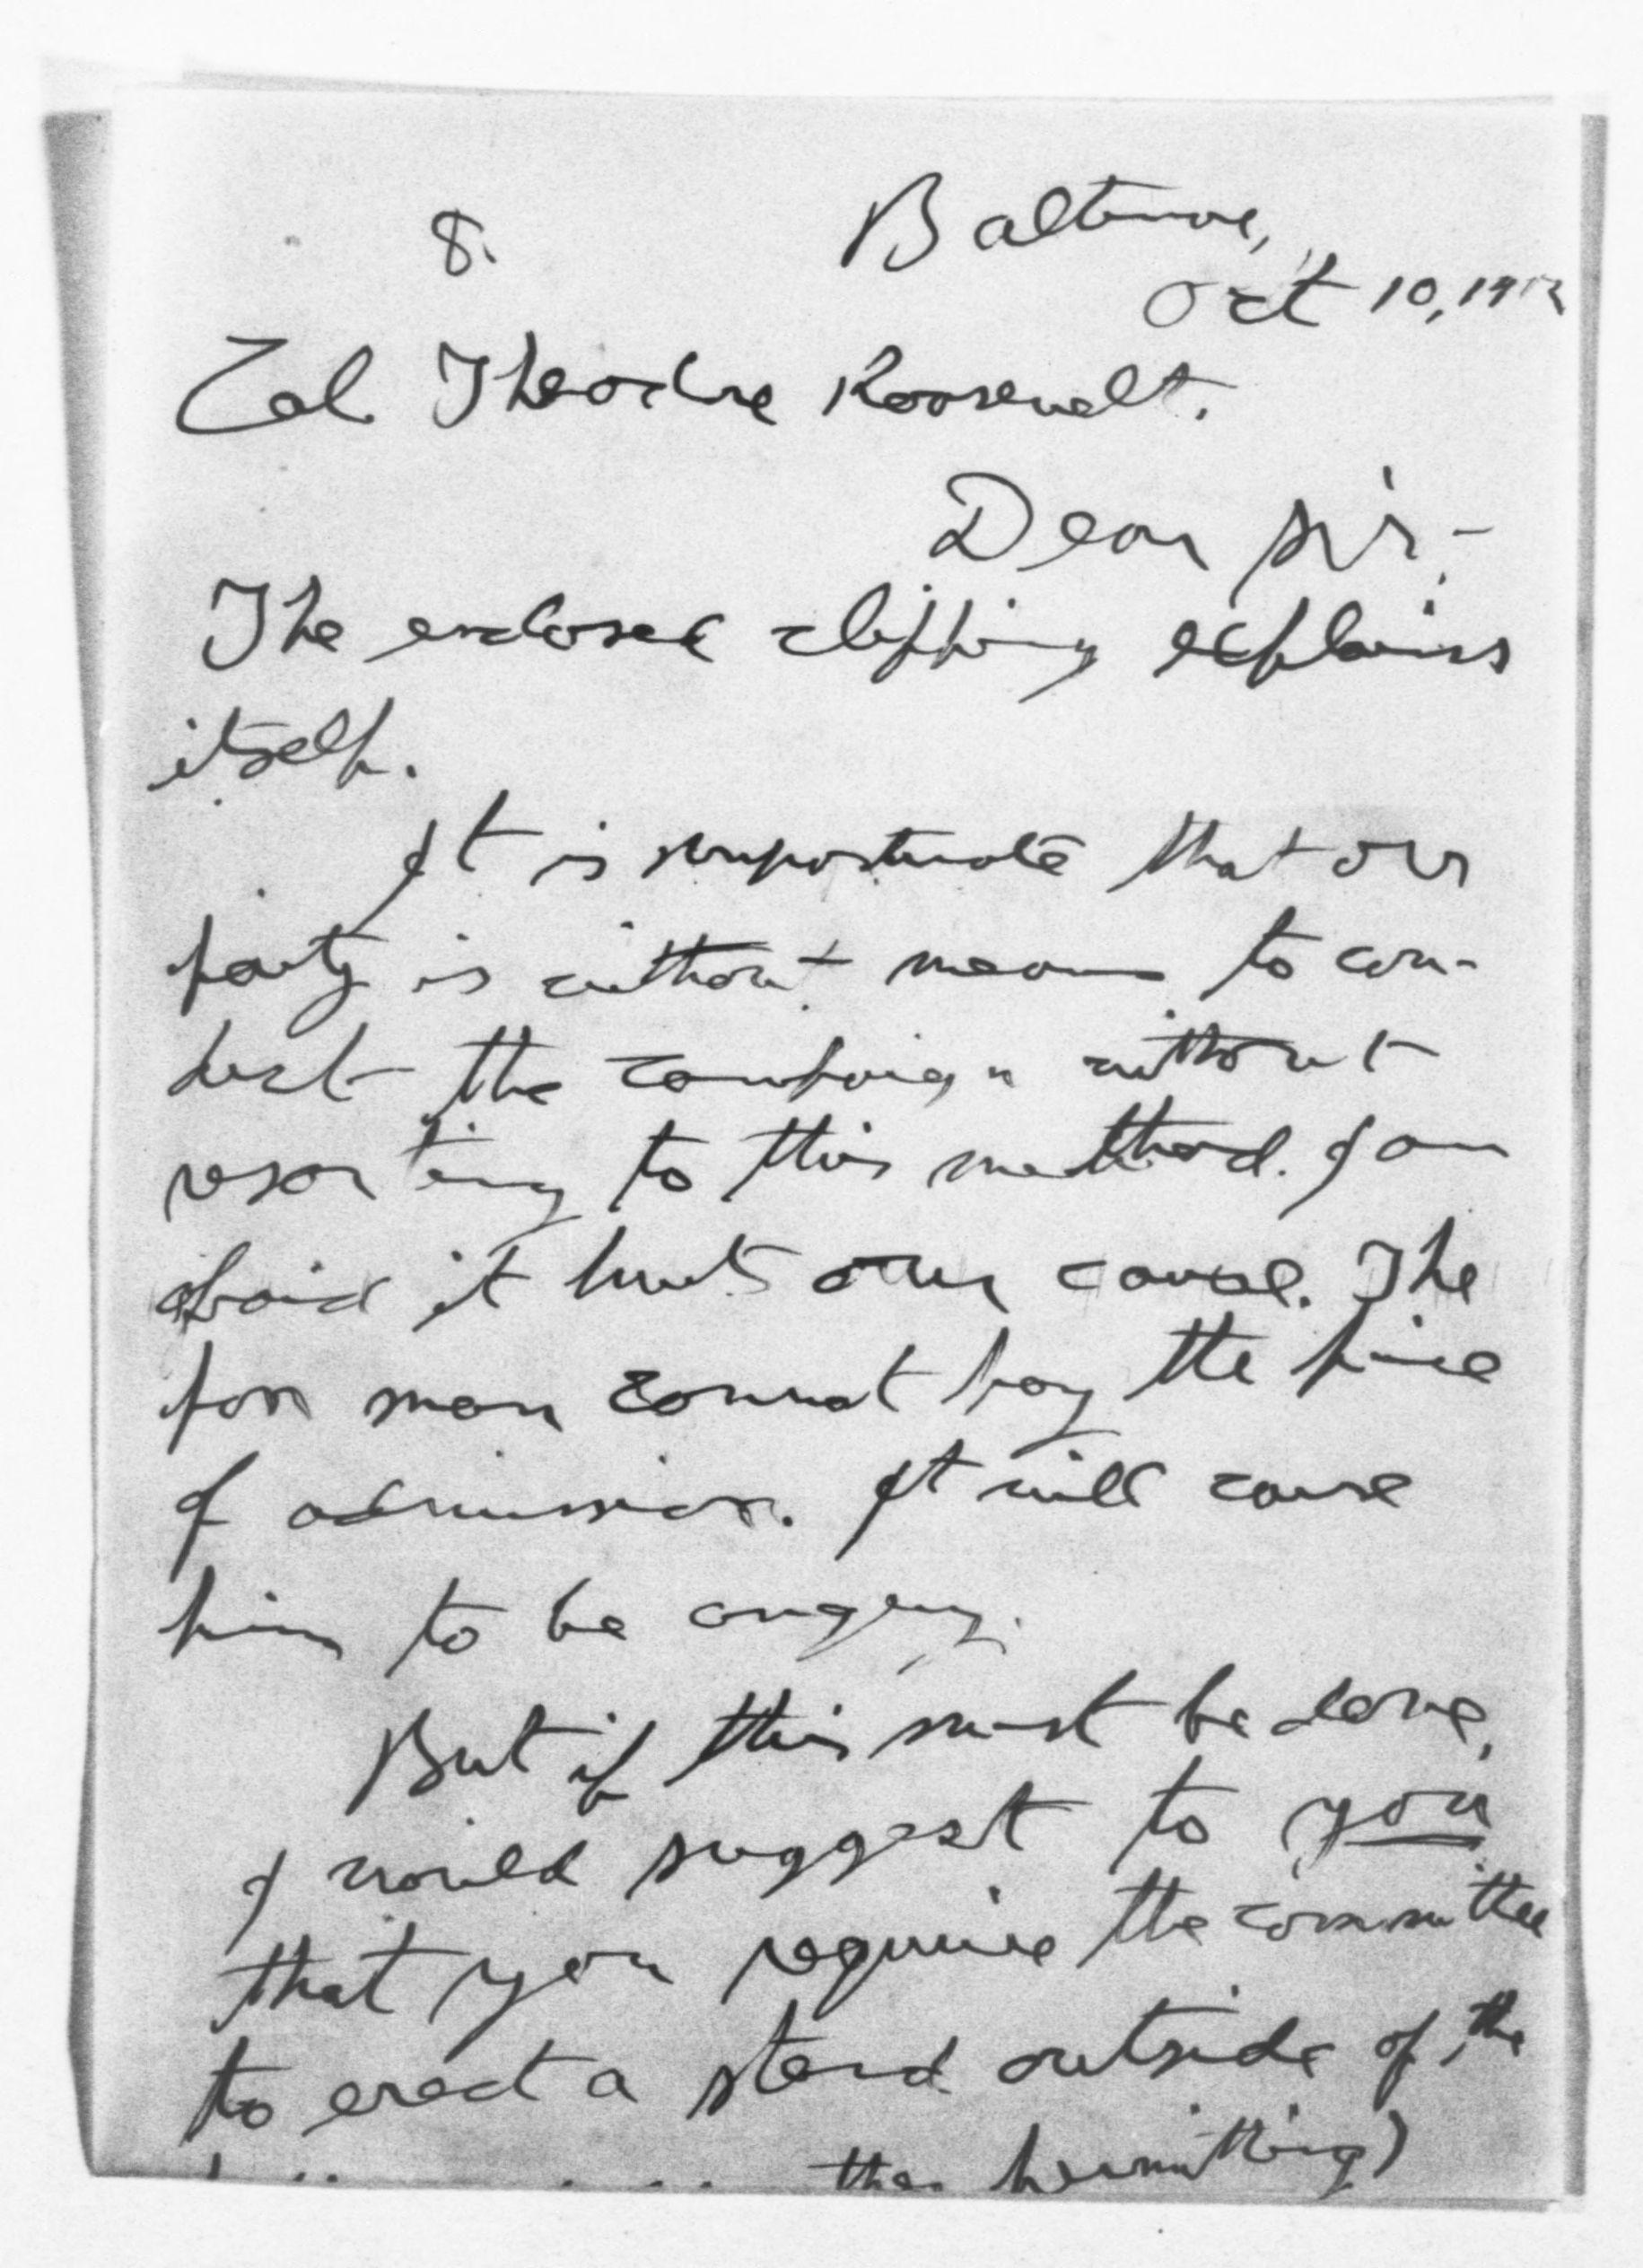 8. Baltimore,
Oct 10, 1912
Col. Theodore Roosevelt.
Dear Sir:-
The enclosed clipping explains
itself.
It is unfortunate that our
party is without means to con-
duct the campaign without
resorting to this method. I am
afraid it hurts our cause. The
poor man cannot pay the price
of admission. It will cause
him to be angry.
But if this must be done,
I would suggest to you
that you require the committee
to erect a stand outside of the
permitting)